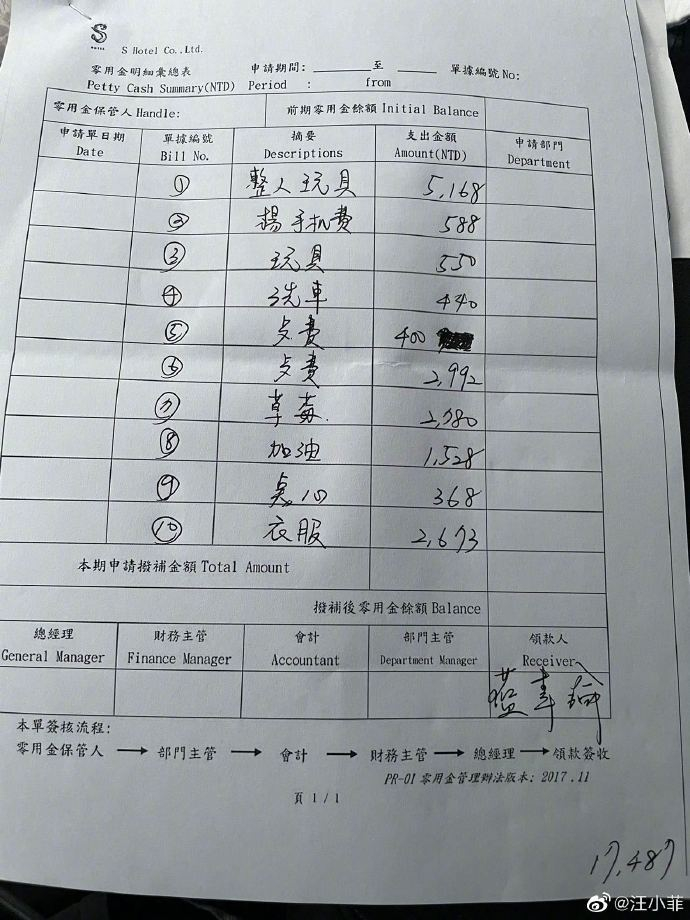 S
HOTEL
S Hotel Co.,Ltd.
零用金明細彙總表 申請期間: ____ 至 ____ 單據編號 No:
Petty Cash Summary(NTD) Period : from
零用金保管人 Handle: 前期零用金餘額 Initial Balance
申請單日期 單據編號 摘要 支出金額 申請部門
Date Bill No. Descriptions Amount(NTD) Department
① 整人玩具 5,168
② 楊手机費 588
③ 玩具 550
④ 洗車 440
⑤ 歺費 400
⑥ 歺費 2,992
⑦ 草莓 2,780
⑧ 加油 1,528
⑨ 点心 368
⑩ 衣服 2,673
本期申請撥補金額 Total Amount
撥補後零用金餘額 Balance
總經理 財務主管 會計 部門主管 領款人
General Manager Finance Manager Accountant Department Manager Receiver
本單簽核流程:
零用金保管人 → 部門主管 → 會計 → 財務主管 → 總經理 → 領款簽收
PR-01 零用金管理辦法版本: 2017.11
頁 1 / 1
17,487
@汪小菲